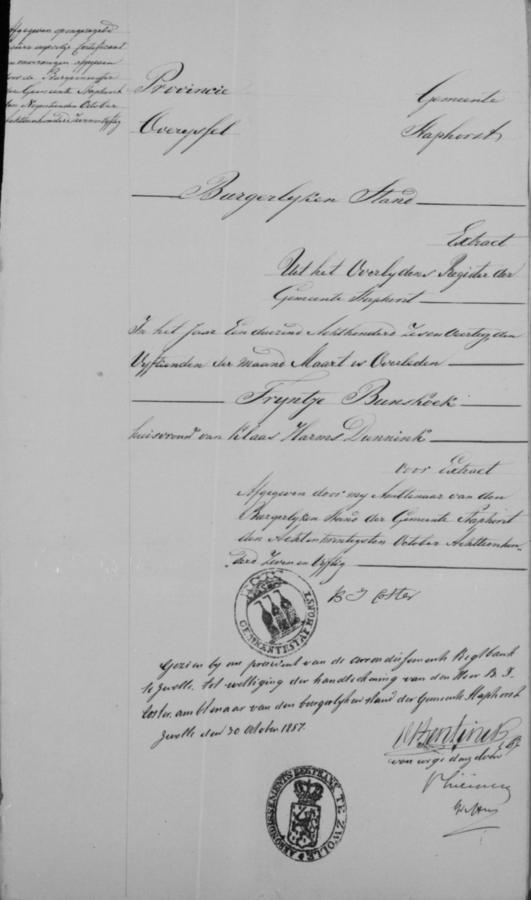 Afgegeven
Certificaat
door de Burgemeester
der Gemeente Staphorst
den October
Provincie Gemeente
Overyssel Staphorst
Burgerlyken Stand
Extract
Uit het Overlydens Register der
Gemeente Staphorst
In het Jaar Een duizend Achthonderd Zeven Veertig den
Vyftienden der maand Maart is Overleden
Fryntje Bunskoek
huisvrouw van Klaas Harms Dunnink
Voor Extract
Afgegeven door my Ambtenaar van den
Burgerlyken Stand der Gemeente Staphorst
den Achtentwintigsten October Achttienhon
derd Zeven en Vyftig
B J Coster
GEMEENTE STAPHORST
Gezien by ons president van de arrondissements Regtbank
te Zwolle, tot williging der handtekening van den Heer B. J.
Coster, ambtenaar van den burgerlyken stand der Gemeente Staphorst
Zwolle den 30 October 1857.
van wege dezelve
ARRONDISSEMENTS REGTBANK TE ZWOLLE